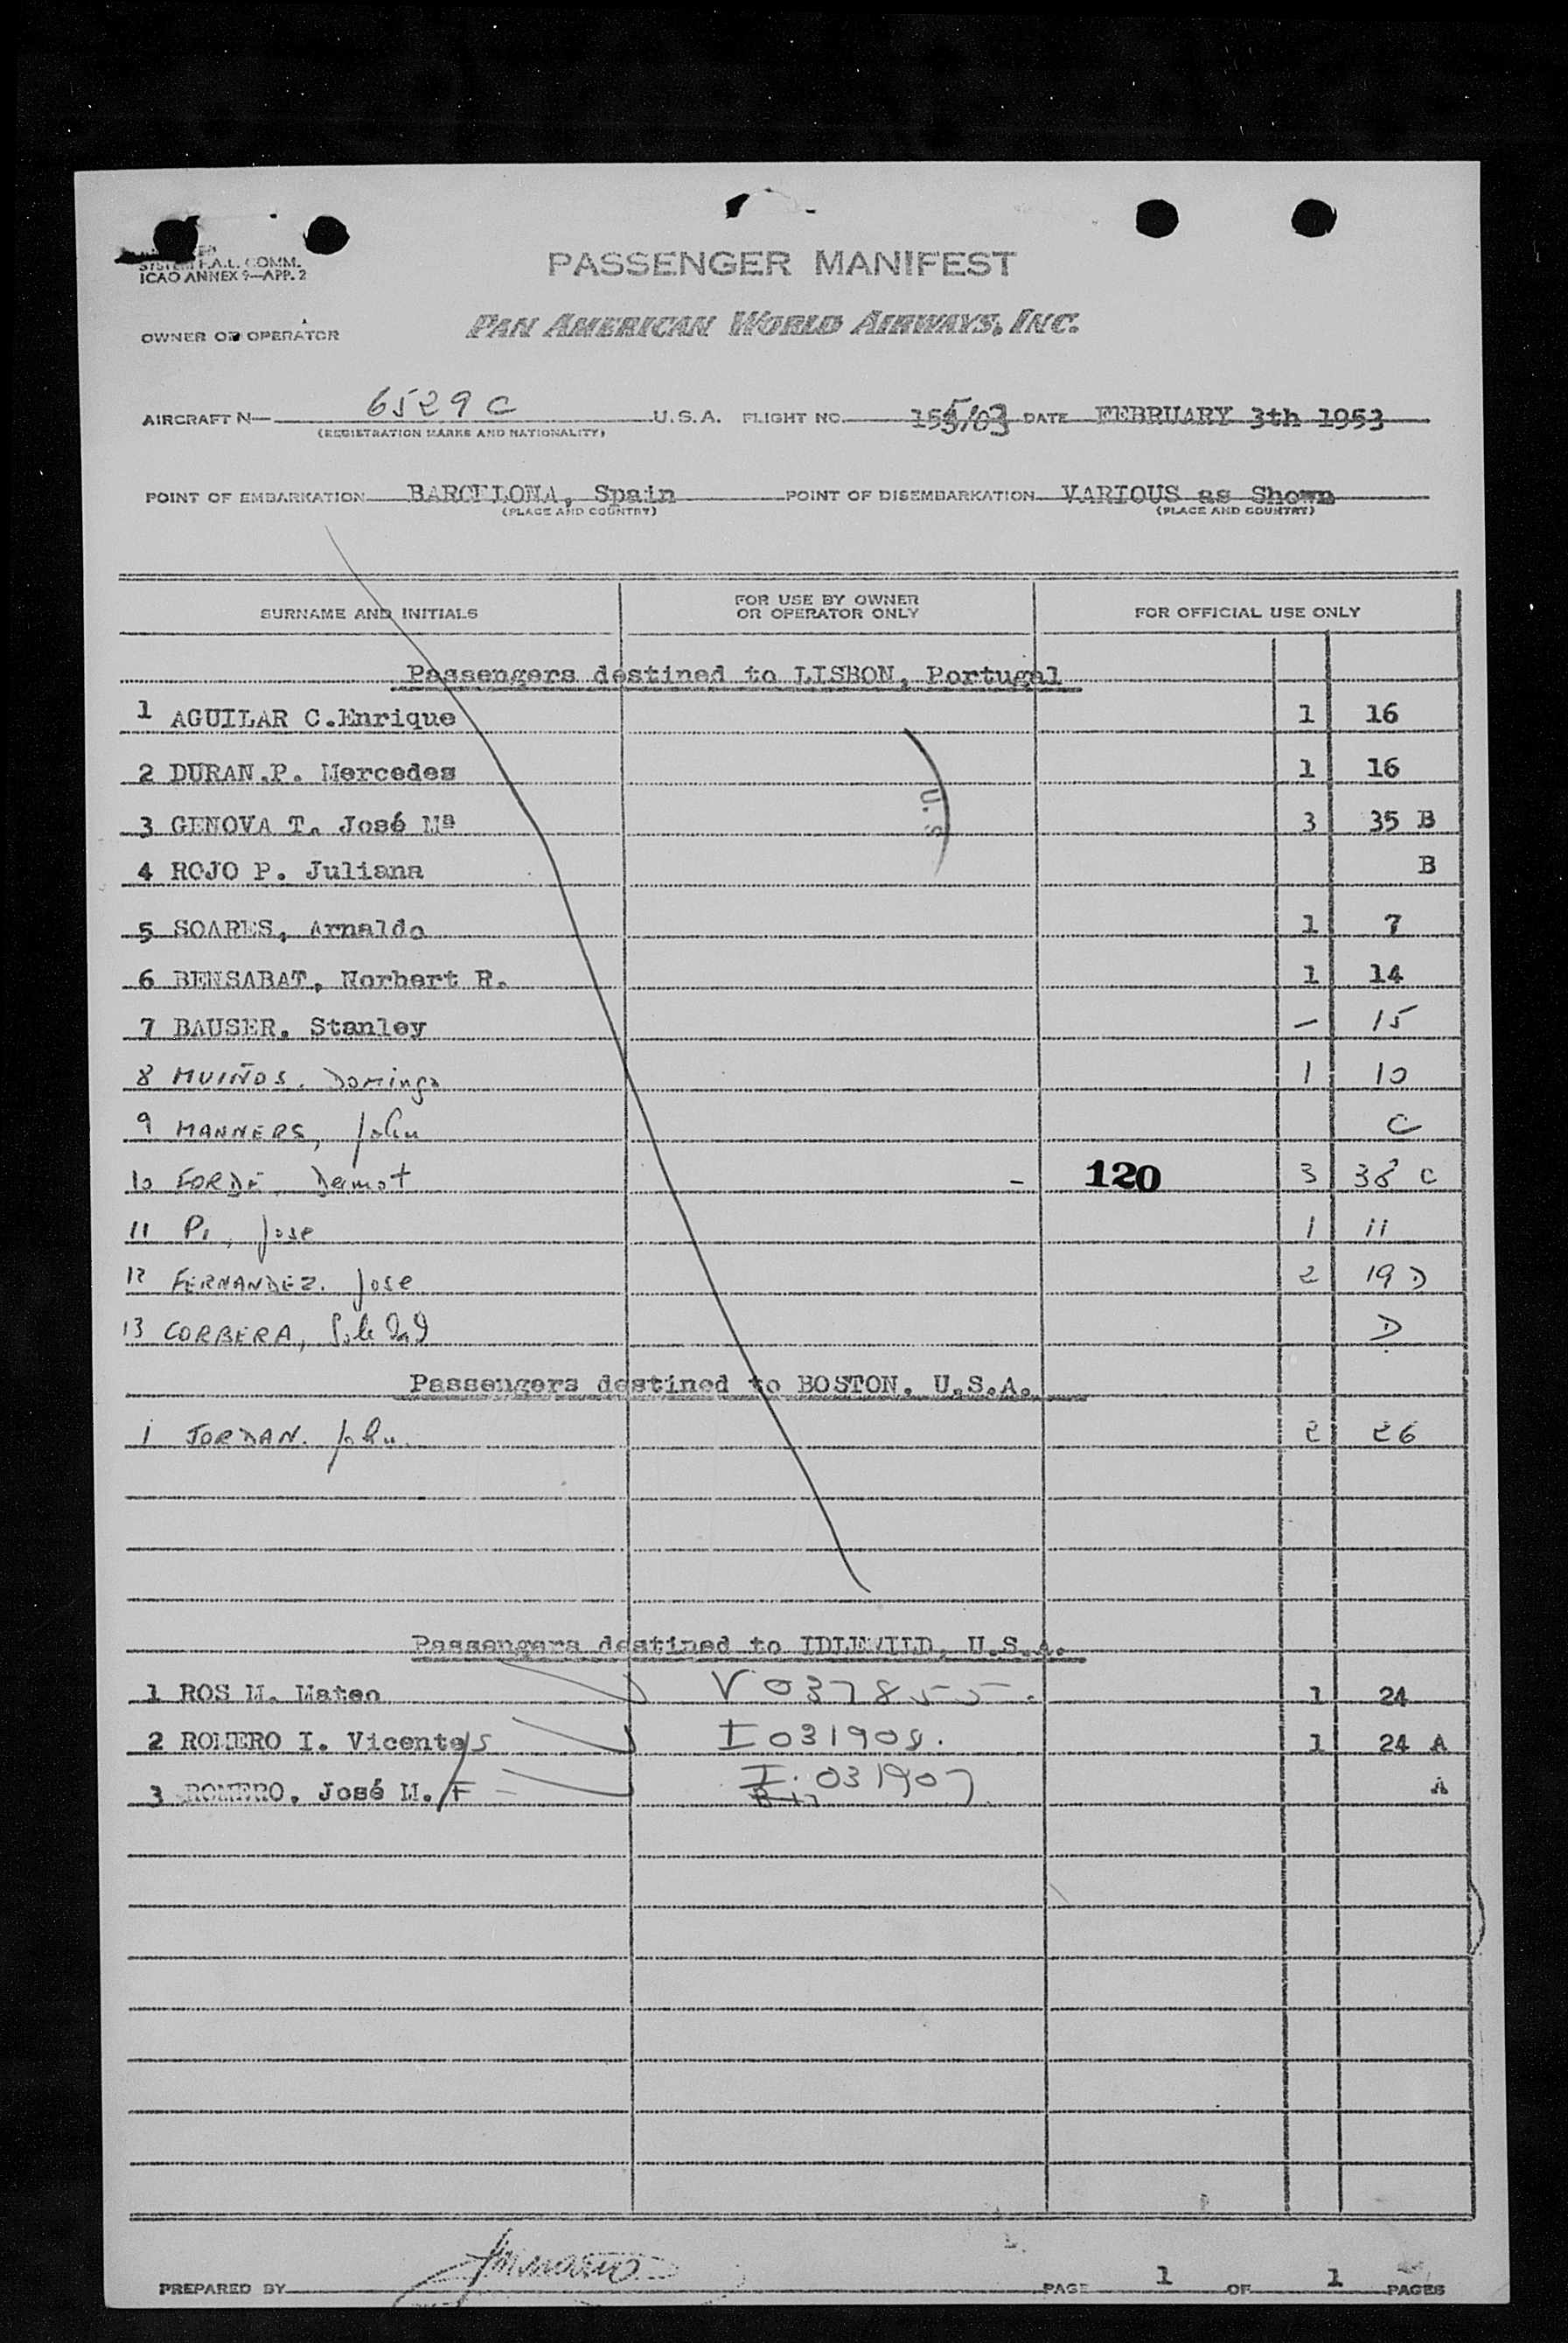 SYSTEM F.A.L. COMM.
ICAO ANNEX 9—APP. 2
PASSENGER MANIFEST
OWNER OR OPERATOR
PAN AMERICAN WORLD AIRWAYS, INC.
AIRCRAFT N— 6529C U.S.A. FLIGHT NO. 155/03 DATE FEBRUARY 3th 1953
(REGISTRATION MARKS AND NATIONALITY)
POINT OF EMBARKATION BARCELONA, Spain POINT OF DISEMBARKATION VARIOUS as Shown
(PLACE AND COUNTRY) (PLACE AND COUNTRY)
SURNAME AND INITIALS FOR USE BY OWNER OR OPERATOR ONLY FOR OFFICIAL USE ONLY
Passengers destined to LISBON, Portugal
1 AGUILAR C.Enrique 1 16
2 DURAN.P. Mercedes 1 16
U.S
3 GENOVA T. José Mª 3 35 B
4 ROJO P. Juliana B
5 SOARES, Arnaldo 1 7
6 BENSABAT, Norbert R. 1 14
7 BAUSER, Stanley — 15
8 MUIÑOS. Domingo 1 10
9 MANNERS, John C
10 FORDE, Dermot - 120 3 38 C
11 Pi, Jose 1 11
12 FERNANDEZ. Jose 2 19 D
13 CORBERA, Soledad D
Passengers destined to BOSTON. U.S.A.
1 JORDAN. John. 2 26
Passengers destined to IDLEWILD, U.S.A.
1 ROS M. Mateo V037855. 1 24
2 ROMERO I. Vicente/S I031908. 1 24 A
3 ROMERO. José M./F I.031907 A
PREPARED BY PAGE 1 OF 1 PAGES